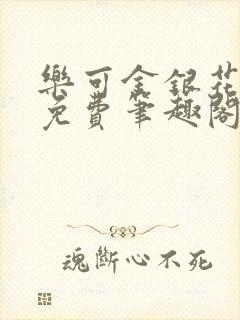 樂可金銀花
免費筆趣閣
魂斷心不死